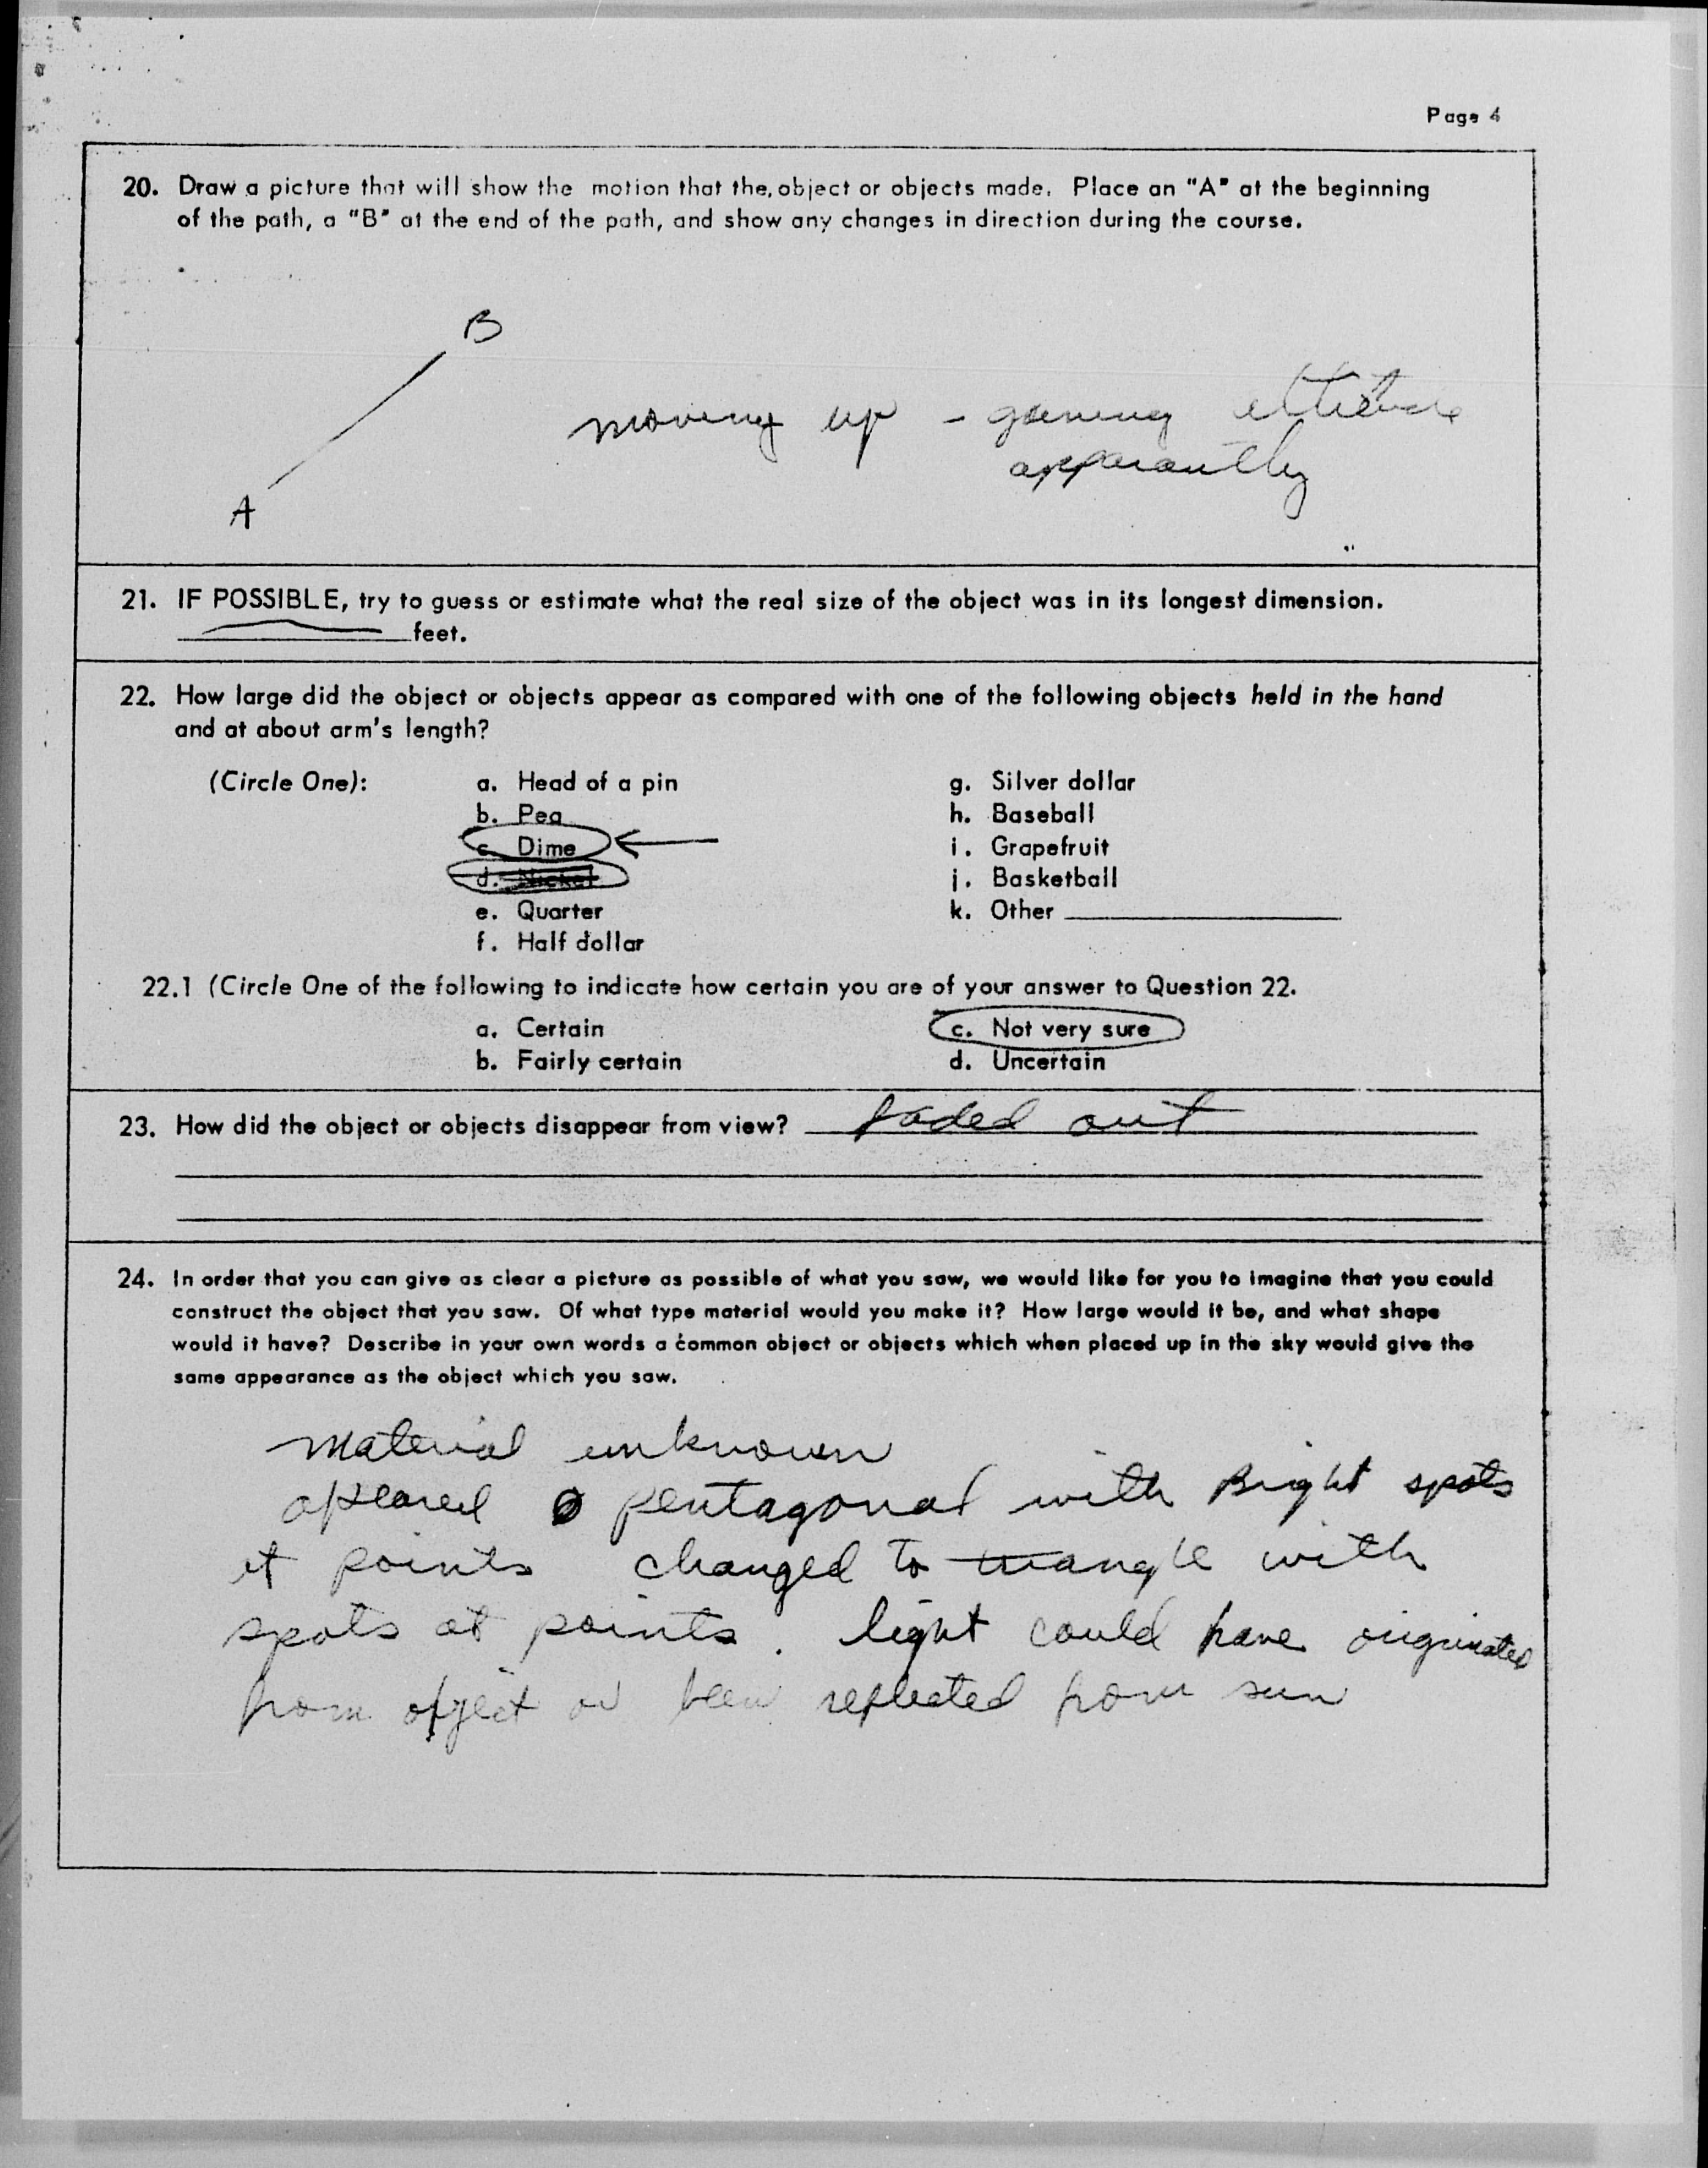 Page 4
20. Draw a picture that will show the motion that the object or objects made. Place an "A" at the beginning
of the path, a "B" at the end of the path, and show any changes in direction during the course.
B
moving up -
apparantly
A
21. IF POSSIBLE, try to guess or estimate what the real size of the object was in its longest dimension.
feet.
22. How large did the object or objects appear as compared with one of the following objects held in the hand
and at about arm's length?
(Circle One): a. Head of a pin g. Silver dollar
b. Pea h. Baseball
c. Dime i. Grapefruit
d. Nickel j. Basketball
e. Quarter k. Other
f. Half dollar
22.1 (Circle One of the following to indicate how certain you are of your answer to Question 22.
a. Certain c. Not very sure
b. Fairly certain d. Uncertain
23. How did the object or objects disappear from view? faded out
24. In order that you can give as clear a picture as possible of what you saw, we would like for you to imagine that you could
construct the object that you saw. Of what type material would you make it? How large would it be, and what shape
would it have? Describe in your own words a common object or objects which when placed up in the sky would give the
same appearance as the object which you saw.
material unknown
apeared pentagonal with Bright spots
at points changed to triangle with
spots at points. light could have originated
from object or been reflected from sun